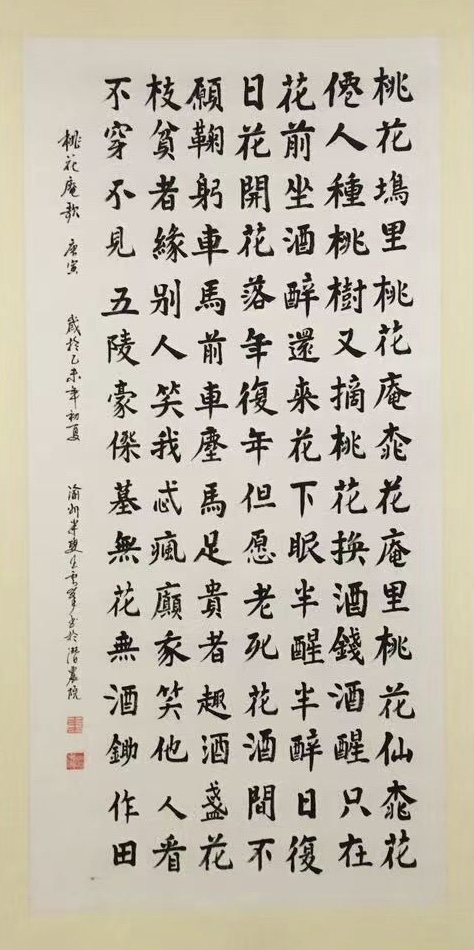 桃花塢里桃花庵桃花庵里桃花仙桃花
僊人種桃樹又摘桃花换酒錢酒醒只在
花前坐酒醉還来花下眠半醒半醉日復
日花開花落年復年但愿老死花酒間不
願鞠躬車馬前車塵馬足貴者趣酒盞花
枝貧者緣别人笑我忒瘋癲家笑他人看
不穿不見五陵豪傑墓無花無酒鋤作田
桃花庵歌 唐寅 歲於乙未年初夏 渝州